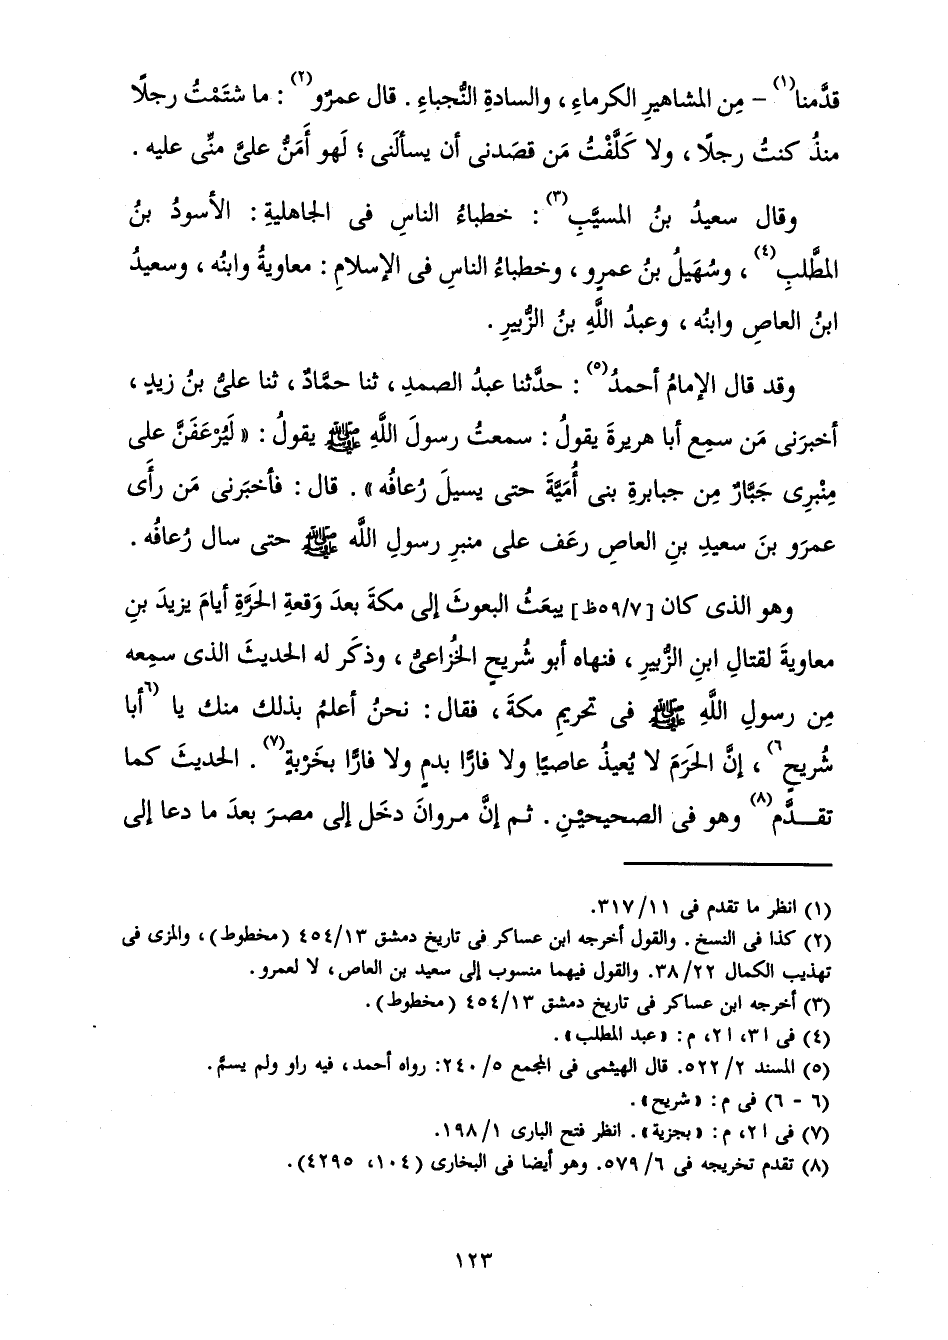 قدَّمنا(١) – مِن المشاهيرِ الكرماءِ، والسادةِ النُّجباءِ. قال عمرٌو(٢): ما شتَمْتُ رجلًا
منذُ كنتُ رجلًا، ولا كَلَّفْتُ مَن قصَدنى أن يسألَنى؛ لَهو أَمَنُّ علىَّ منِّى عليه.
وقال سعيدُ بنُ المسيَّبِ(٣): خطباءُ الناسِ فى الجاهليةِ: الأسودُ بنُ
المطَّلبِ(٤)، وسُهَيلُ بنُ عمرٍو، وخطباءُ الناسِ فى الإسلامِ: معاويةُ وابنُه، وسعيدُ
ابنُ العاصِ وابنُه، وعبدُ اللَّهِ بنُ الزُّبيرِ.
وقد قال الإمامُ أحمدُ(٥): حدَّثنا عبدُ الصمدِ، ثنا حمَّادٌ، ثنا علىُّ بنُ زيدٍ،
أخبرَنى مَن سمِع أبا هريرةَ يقولُ: سمعتُ رسولَ اللَّهِ ﷺ يقولُ: «لَيُرْعَفَنَّ على
مِنْبرِى جَبَّارٌ مِن جبابرةِ بنى أُمَيَّةَ حتى يسيلَ رُعافُه». قال: فأخبَرنى مَن رأَى
عمرَو بنَ سعيدِ بنِ العاصِ رعَف على منبرِ رسولِ اللَّه ﷺ حتى سال رُعافُه.
وهو الذى كان [٥٩/٧ظ] يبعَثُ البعوثَ إلى مكةَ بعدَ وَقعةِ الحَرَّةِ أيامَ يزيدَ بنِ
معاويةَ لقتالِ ابنِ الزُّبيرِ، فنهاه أبو شُريحٍ الخُزاعىُّ، وذكَر له الحديثَ الذى سمِعه
مِن رسولِ اللَّهِ ﷺ فى تحريمِ مكةَ، فقال: نحنُ أعلمُ بذلك منك يا (٦أبا
شُريحٍ٦)، إنَّ الحَرَمَ لا يُعيذُ عاصيًا ولا فارًّا بدمٍ ولا فارًّا بخَرْبةٍ(٧). الحديثَ كما
تقـــدَّم(٨) وهو فى الصحيحيْنِ. ثم إنَّ مروانَ دخَل إلى مصرَ بعدَ ما دعا إلى
(١) انظر ما تقدم فى ٣١٧/١١.
(٢) كذا فى النسخ. والقول أخرجه ابن عساكر فى تاريخ دمشق ٤٥٤/١٣ (مخطوط)، والمزى فى
تهذيب الكمال ٣٨/٢٢. والقول فيهما منسوب إلى سعيد بن العاص، لا لعمرو.
(٣) أخرجه ابن عساكر فى تاريخ دمشق ٤٥٤/١٣ (مخطوط).
(٤) فى ا٣، ا٢، م: «عبد المطلب».
(٥) المسند ٥٢٢/٢. قال الهيثمى فى المجمع ٢٤٠/٥: رواه أحمد، فيه راو ولم يسمَّ.
(٦ - ٦) فى م: «شريح».
(٧) فى ا٢، م: «بجزية». انظر فتح البارى ١٩٨/١.
(٨) تقدم تخريجه فى ٥٧٩/٦. وهو أيضا فى البخارى (١٠٤، ٤٢٩٥).
١٢٣